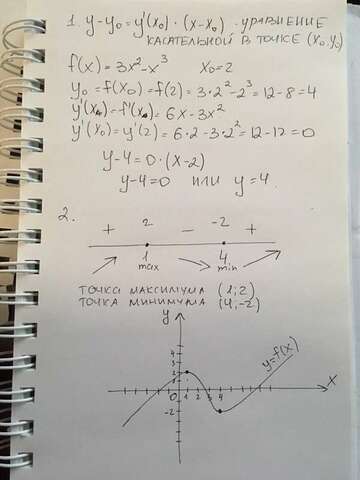 1. y-y₀=y'(x₀)·(x-x₀) - уравнение
касательной в точке (x₀,y₀)
f(x)=3x²-x³ x₀=2
y₀=f(x₀)=f(2)=3·2²-2³=12-8=4
y'(x)=f'(x)=6x-3x²
y'(x₀)=y'(2)=6·2-3·2²=12-12=0
y-4=0·(x-2)
y-4=0 или y=4.
2.
+ 2 - -2 +
1 4
max min
точка максимума (1;2)
точка минимума (4;-2)
y
4
3
2
1
0 1 2 3 4 x
-2
y=f(x)